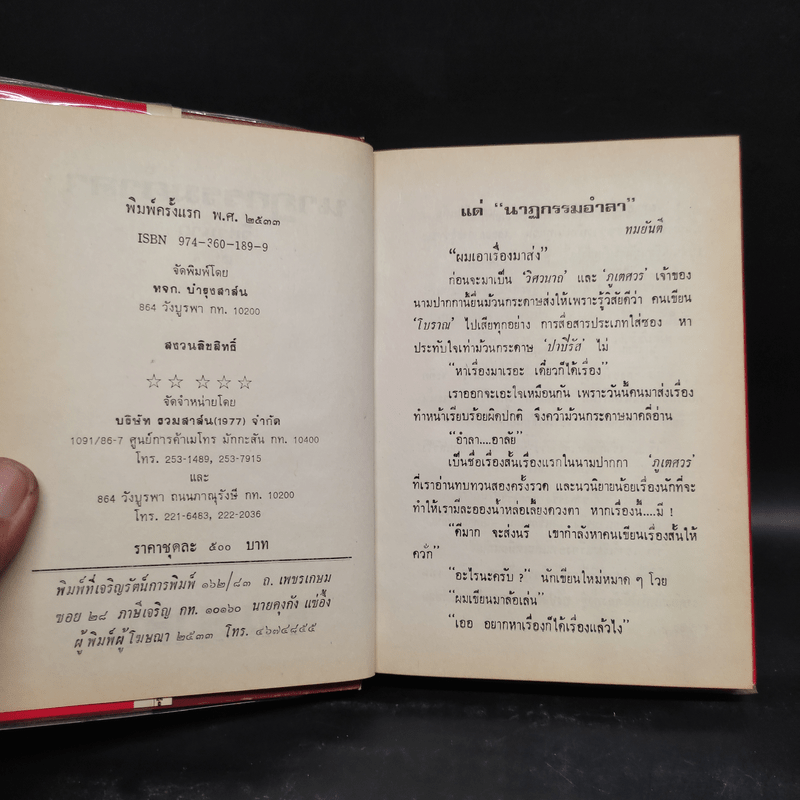 พิมพ์ครั้งแรก พ.ศ. ๒๕๓๓
ISBN 974-360-189-9
จัดพิมพ์โดย
หจก. บำรุงสาส์น
864 วังบูรพา กท. 10200
สงวนลิขสิทธิ์
☆ ☆ ☆ ☆ ☆
จัดจำหน่ายโดย
บริษัท รวมสาส์น(1977) จำกัด
1091/86-7 ศูนย์การค้าเมโทร มักกะสัน กท. 10400
โทร. 253-1489, 253-7915
และ
864 วังบูรพา ถนนภาณุรังษี กท. 10200
โทร. 221-6483, 222-2036
ราคาชุดละ ๕๐๐ บาท
พิมพ์ที่เจริญรัตน์การพิมพ์ ๑๖๒/๘๓ ถ. เพชรเกษม
ซอย ๒๘ ภาษีเจริญ กท. ๑๐๑๖๐ นายคุงกัง แซ่อึ้ง
ผู้พิมพ์ผู้โฆษณา ๒๕๓๓ โทร. ๔๖๗๔๘๕๕
แด่ “นาฏกรรมอำลา”
ทมยันตี
“ผมเอาเรื่องมาส่ง”
ก่อนจะมาเป็น ‘วิศวนาถ’ และ ‘ภูเตศวร’ เจ้าของ
นามปากกานี้ยื่นม้วนกระดาษส่งให้เพราะรู้วิสัยดีว่า คนเขียน
‘โบราณ’ ไปเสียทุกอย่าง การสื่อสารประเภทใส่ซอง หา
ประทับใจเท่าม้วนกระดาษ ‘ปาปิรัส’ ไม่
“หาเรื่องมาเรอะ เดี๋ยวก็ได้เรื่อง”
เราออกจะเอะใจเหมือนกัน เพราะวันนี้คนมาส่งเรื่อง
ทำหน้าเรียบร้อยผิดปกติ จึงคว้าม้วนกระดาษมาคลี่อ่าน
“อำลา....อาลัย”
เป็นชื่อเรื่องสั้นเรื่องแรกในนามปากกา ‘ภูเตศวร’
ที่เราอ่านทบทวนสองครั้งรวด และนวนิยายน้อยเรื่องนักที่จะ
ทำให้เรามีละอองน้ำหล่อเลี้ยงดวงตา หากเรื่องนี้....มี !
“ดีมาก จะส่งนรี เขากำลังหาคนเขียนเรื่องสั้นให้
ควั่ก”
“อะไรนะครับ ?” นักเขียนใหม่หมาด ๆ โวย
“ผมเขียนมาล้อเล่น”
“เออ อยากหาเรื่องก็ได้เรื่องแล้วไง”